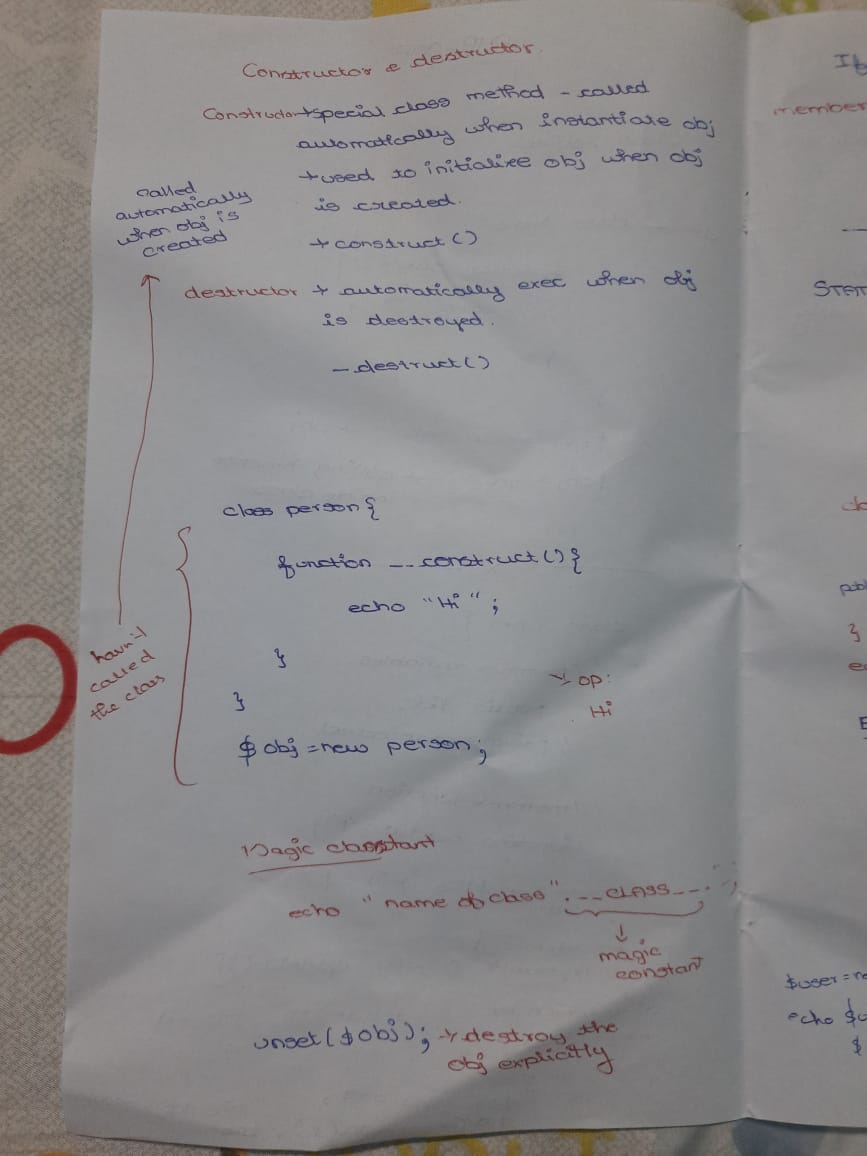 Constructor & destructor.
Constructor → special class method - called
automatically when instantiate obj
→ used to initialize obj when obj
is created.
→ construct ()
called
automatically
when obj is
created
destructor → automatically exec when obj
is destroyed.
— destruct ()
class person {
function __construct () {
echo "Hi";
}
}
$obj = new person;
havn't
called
the class
→ op:
Hi
Magic constant
echo "name of class" . __CLASS__ . ";
↓
magic
constant
unset ($obj); → destroy the
obj explicitly
member
$user =
echo
$